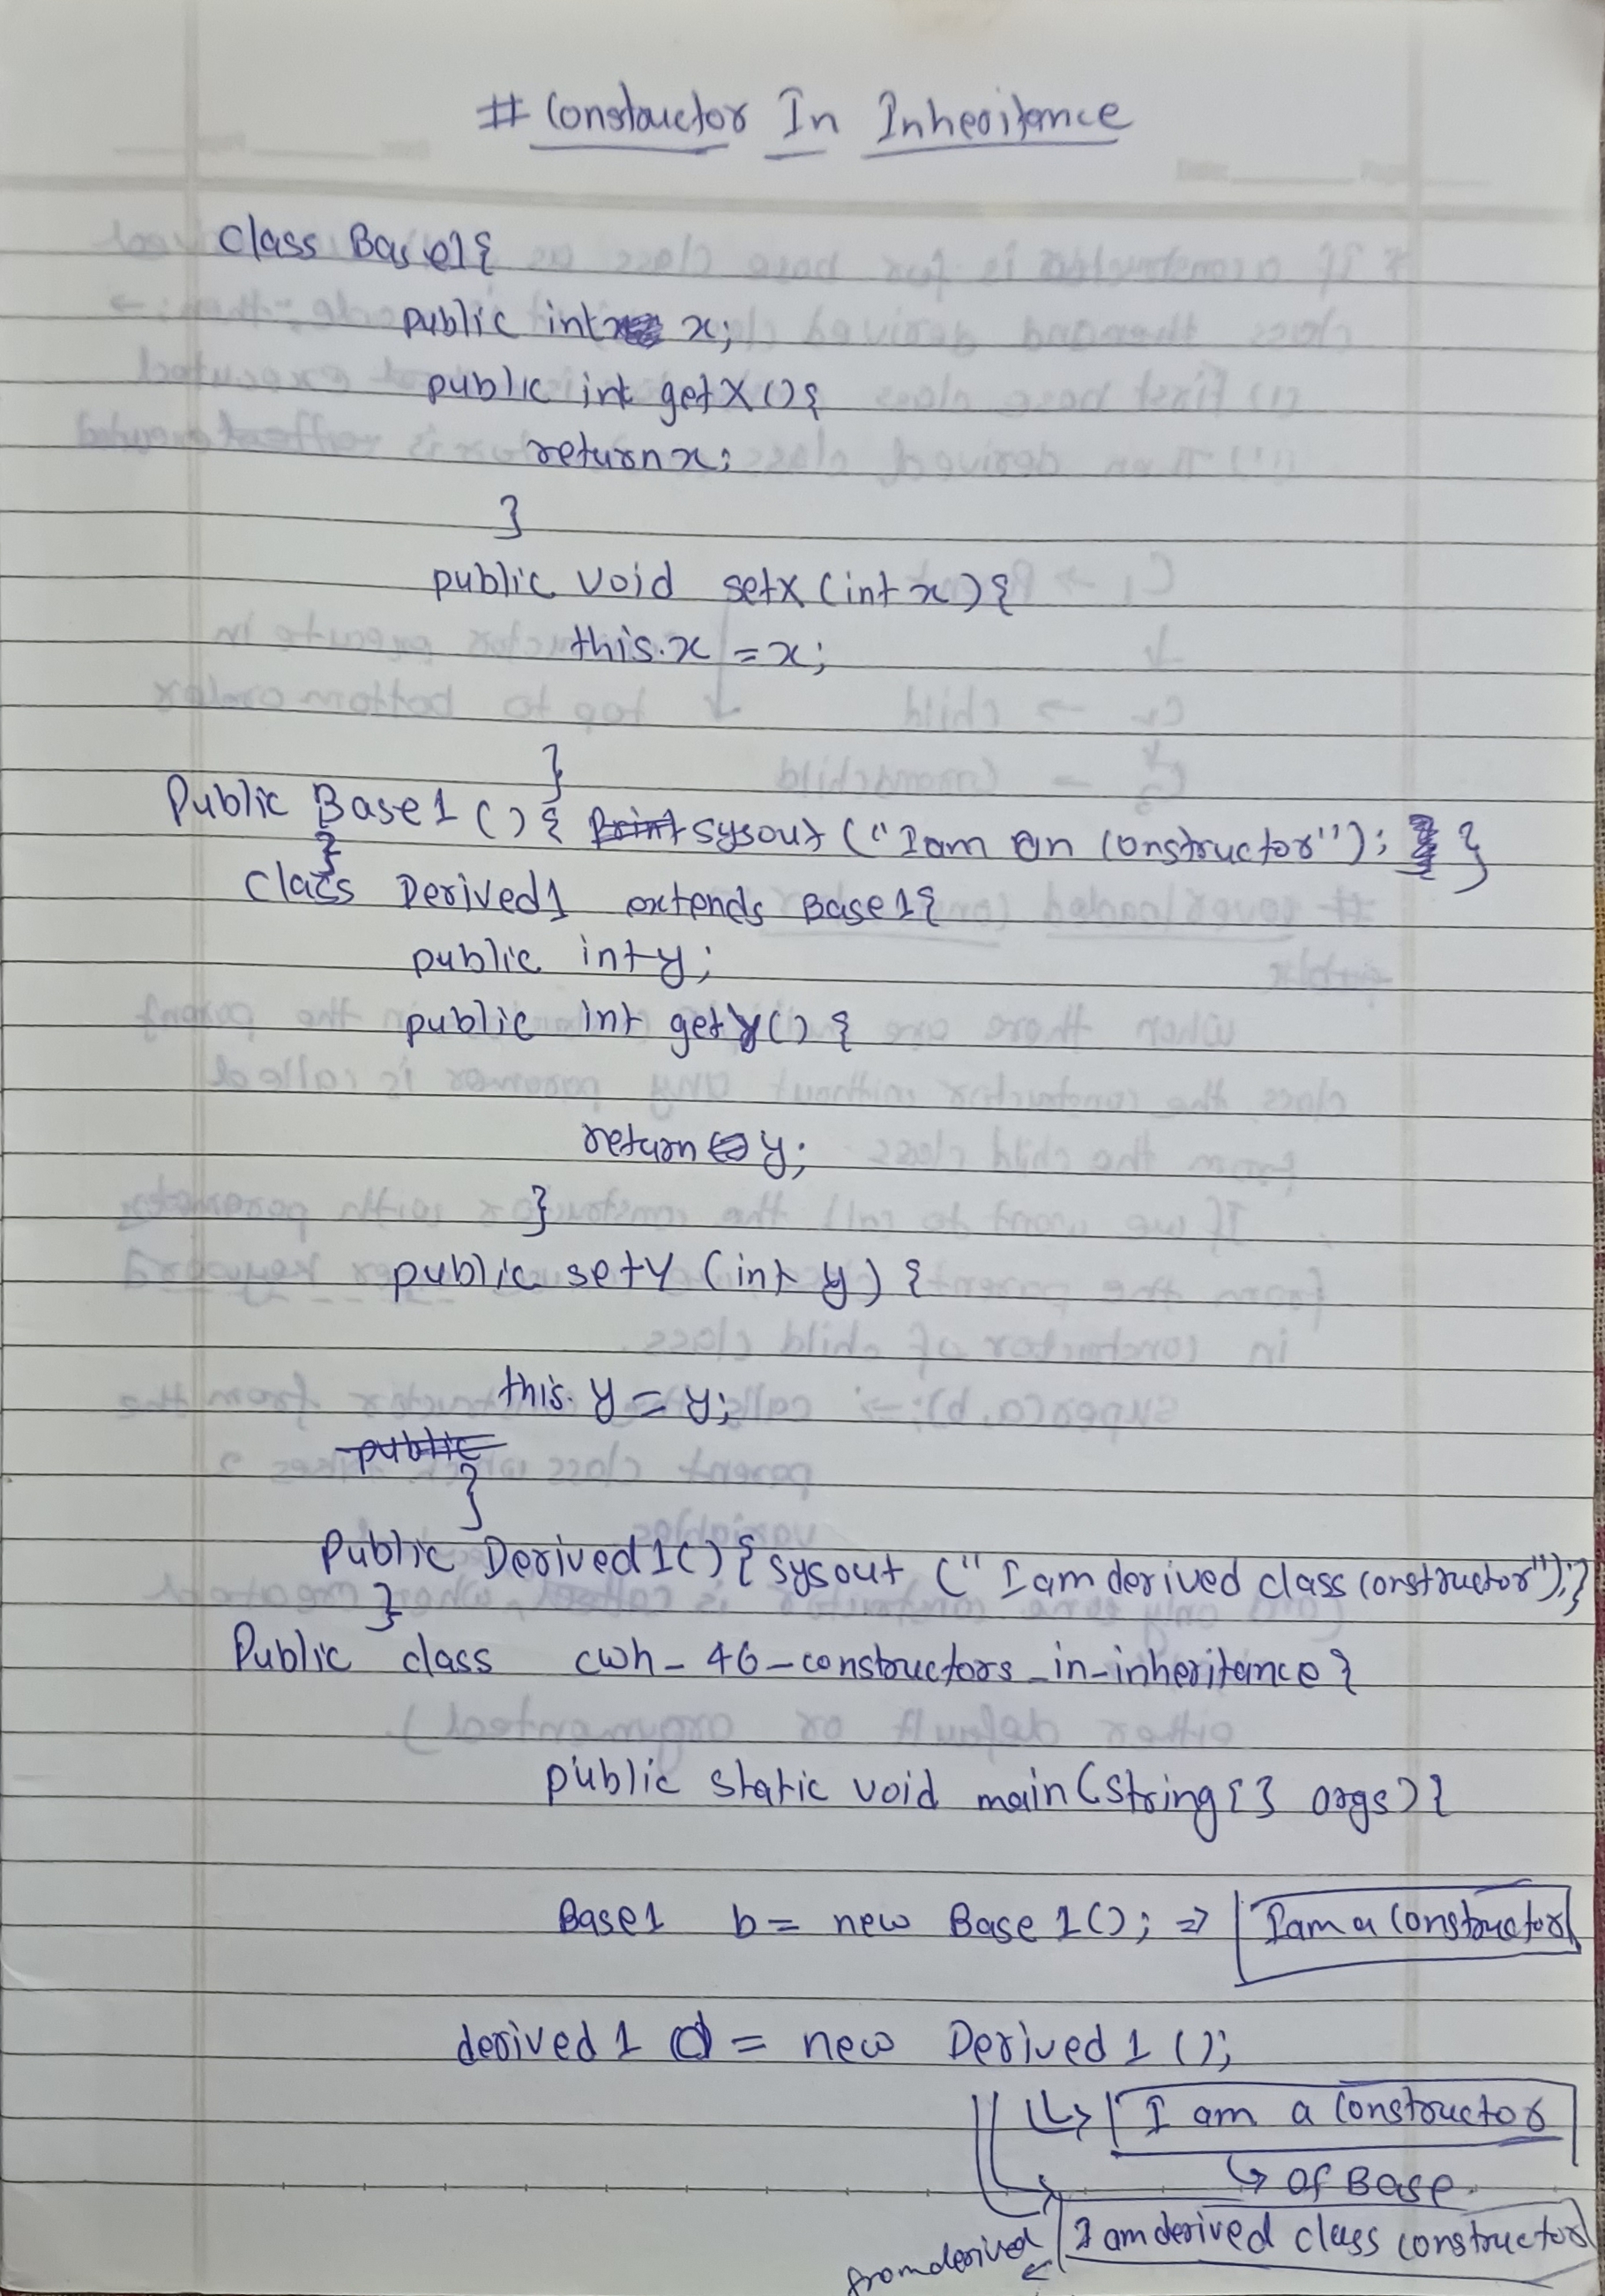 # Constructor In Inheritance
class Base1{
public int x;
public int getX(){
return x;
}
public void setX(int x){
this.x = x;
}
Public Base1(){ Print sysout("I am an constructor"); }
}
class Derived1 extends Base1{
public int y;
public int getY(){
return y;
}
public setY(int y){
this.y = y;
public
}
Public Derived1(){ sysout ("I am derived class constructor");}
}
Public class cwh_46_constructors_in_inheritance{
public static void main(String{} args){
Base1 b = new Base1(); => I am a constructor
derived1 d = new Derived1();
↳ I am a constructor
↳ of Base
from derived I am derived class constructor